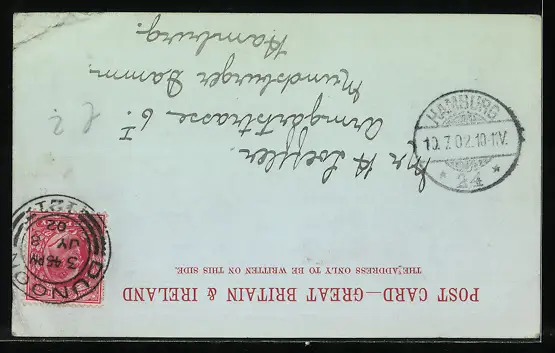 POST CARD—GREAT BRITAIN & IRELAND
THE ADDRESS ONLY TO BE WRITTEN ON THIS SIDE.
Mr H Loeffler.
Armgartstrasse 6. I
Mundsburger Damm.
Hamburg.
HAMBURG
10.7.02.10-11V.
* 24 *
DUNOON
3 45 PM
JY 8
02